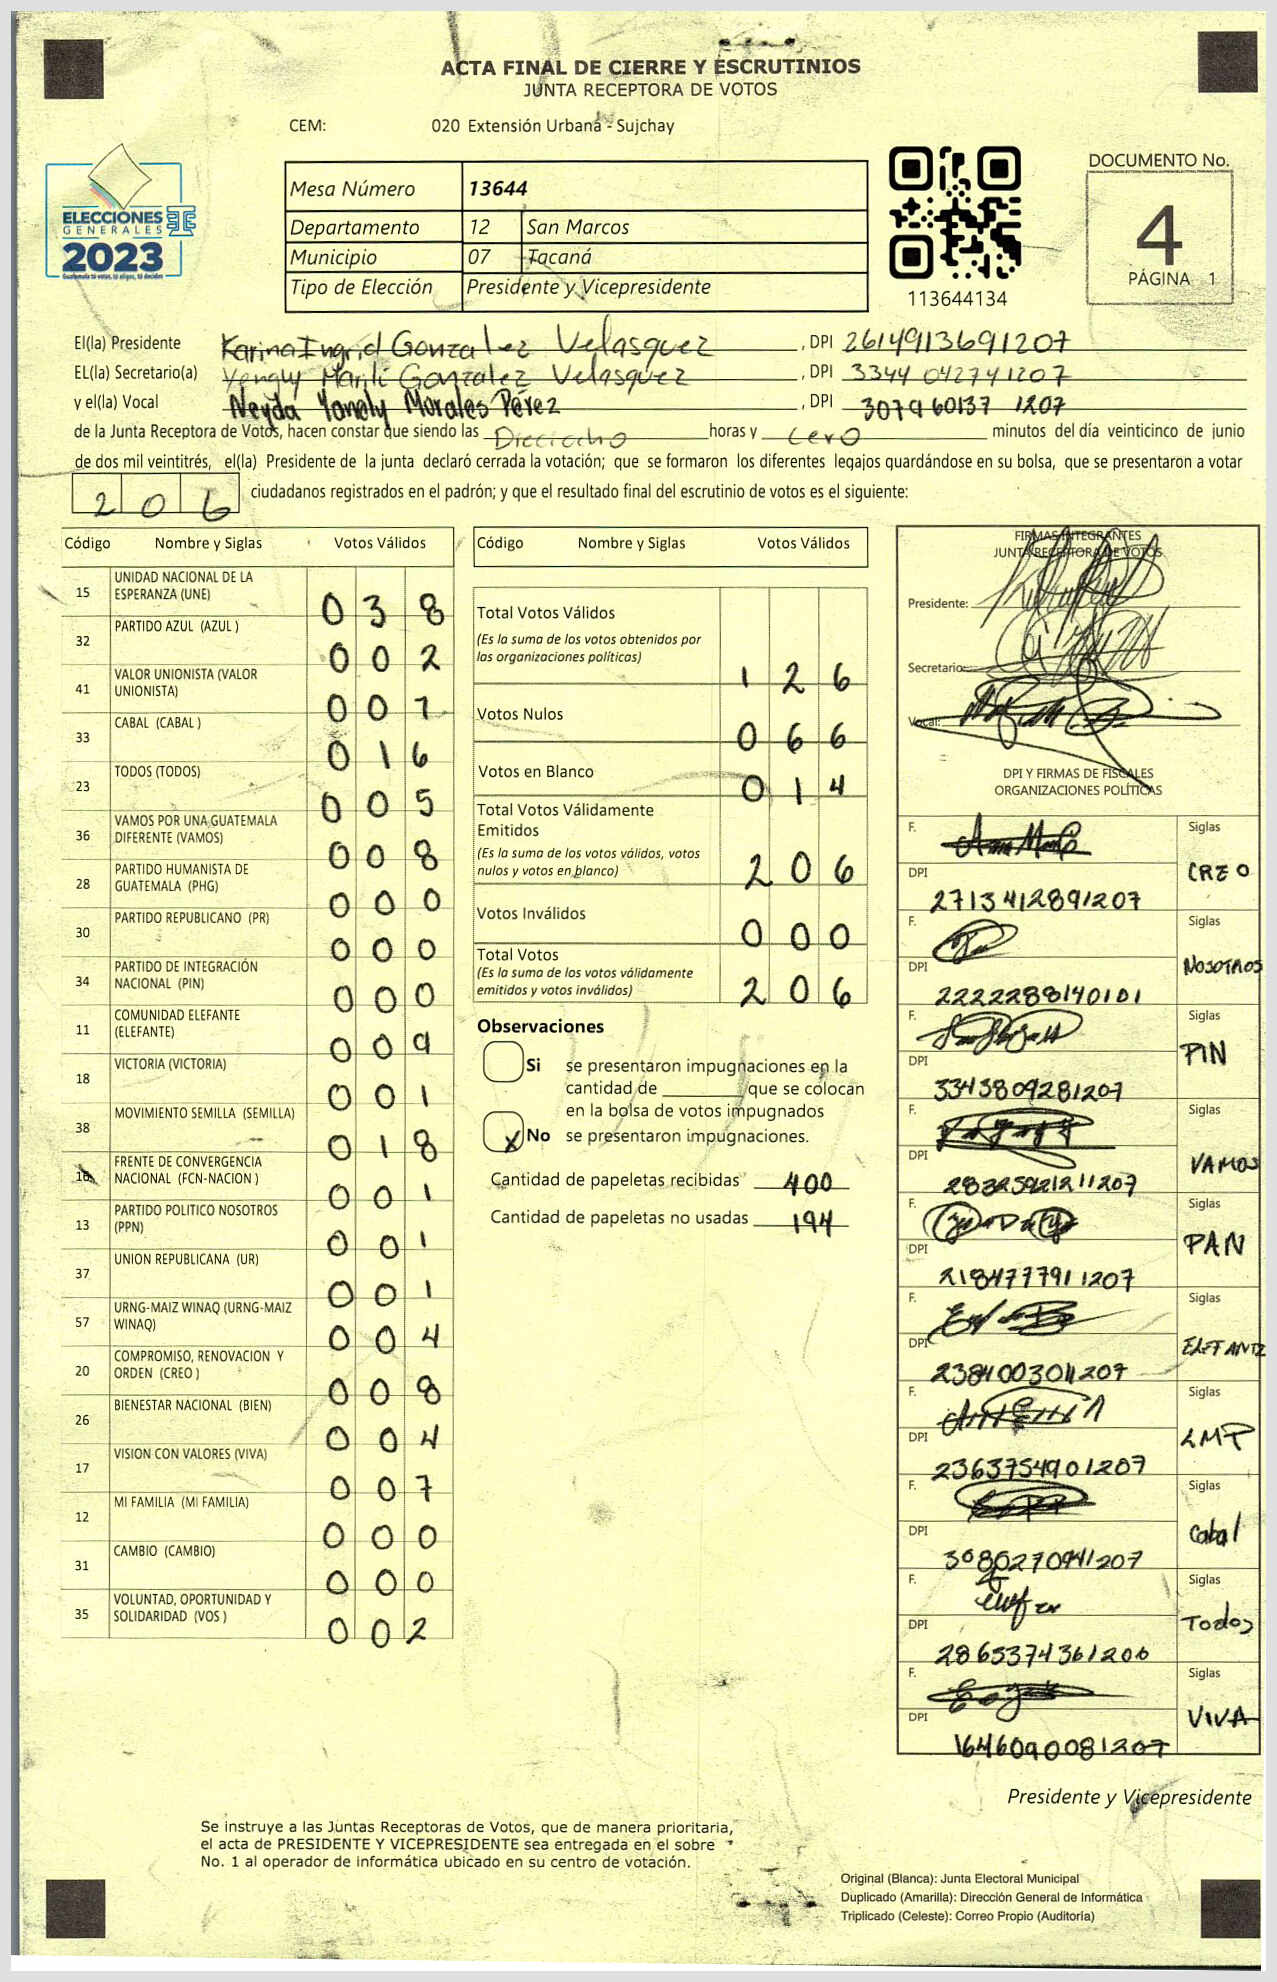 ACTA FINAL DE CIERRE Y ESCRUTINIOS
JUNTA RECEPTORA DE VOTOS
CEM: 020 Extensión Urbana - Sujchay
ELECCIONES
GENERALES
2023
Guatemala tú votas, tú eliges, tú decides
Mesa Número 13644
Departamento 12 San Marcos
Municipio 07 Tacaná
Tipo de Elección Presidente y Vicepresidente
113644134
DOCUMENTO No.
4
PÁGINA 1
El(la) Presidente Karina Ingrid Gonzalez Velasquez, DPI 2614913691207
EL(la) Secretario(a) Yengly Marili Gonzalez Velasquez, DPI 3344 042741207
y el(la) Vocal Neyda Yanely Morales Pérez, DPI 307960137 1207
de la Junta Receptora de Votos, hacen constar que siendo las Dieciocho horas y cero minutos del día veinticinco de junio
de dos mil veintitrés, el(la) Presidente de la junta declaró cerrada la votación; que se formaron los diferentes legajos guardándose en su bolsa, que se presentaron a votar
206 ciudadanos registrados en el padrón; y que el resultado final del escrutinio de votos es el siguiente:
Código Nombre y Siglas Votos Válidos
15 UNIDAD NACIONAL DE LA ESPERANZA (UNE) 038
32 PARTIDO AZUL (AZUL ) 002
41 VALOR UNIONISTA (VALOR UNIONISTA) 001
33 CABAL (CABAL ) 016
23 TODOS (TODOS) 005
36 VAMOS POR UNA GUATEMALA DIFERENTE (VAMOS) 008
28 PARTIDO HUMANISTA DE GUATEMALA (PHG) 000
30 PARTIDO REPUBLICANO (PR) 000
34 PARTIDO DE INTEGRACIÓN NACIONAL (PIN) 000
11 COMUNIDAD ELEFANTE (ELEFANTE) 009
18 VICTORIA (VICTORIA) 001
38 MOVIMIENTO SEMILLA (SEMILLA) 018
16 FRENTE DE CONVERGENCIA NACIONAL (FCN-NACION ) 001
13 PARTIDO POLITICO NOSOTROS (PPN) 001
37 UNION REPUBLICANA (UR) 001
57 URNG-MAIZ WINAQ (URNG-MAIZ WINAQ) 004
20 COMPROMISO, RENOVACION Y ORDEN (CREO ) 008
26 BIENESTAR NACIONAL (BIEN) 004
17 VISION CON VALORES (VIVA) 007
12 MI FAMILIA (MI FAMILIA) 000
31 CAMBIO (CAMBIO) 000
35 VOLUNTAD, OPORTUNIDAD Y SOLIDARIDAD (VOS ) 002
Código Nombre y Siglas Votos Válidos
Total Votos Válidos
(Es la suma de los votos obtenidos por
las organizaciones políticas) 126
Votos Nulos 066
Votos en Blanco 014
Total Votos Válidamente
Emitidos
(Es la suma de los votos válidos, votos
nulos y votos en blanco) 206
Votos Inválidos 000
Total Votos
(Es la suma de los votos válidamente
emitidos y votos inválidos) 206
Observaciones
Si se presentaron impugnaciones en la
cantidad de ________ que se colocan
en la bolsa de votos impugnados
X No se presentaron impugnaciones.
Cantidad de papeletas recibidas 400
Cantidad de papeletas no usadas 194
FIRMAS INTEGRANTES
JUNTA RECEPTORA DE VOTOS
Presidente:
Secretario:
Vocal:
DPI Y FIRMAS DE FISCALES
ORGANIZACIONES POLÍTICAS
F. Siglas
DPI 2713412891207 CREO
F. Siglas
DPI 2222288140101 NOSOTROS
F. Siglas
DPI 3343809281207 PIN
F. Siglas
DPI 2832592121207 VAMOS
F. Siglas
DPI 2184777911207 PAN
F. Siglas
DPI 2384003011207 ELEFANTE
F. Siglas
DPI 2363754901207 LMP
F. Siglas
DPI 3080270941207 Cabal
F. Siglas
DPI 2865374361206 Todos
F. Siglas
DPI 1646090081207 VIVA
Presidente y Vicepresidente
Se instruye a las Juntas Receptoras de Votos, que de manera prioritaria,
el acta de PRESIDENTE Y VICEPRESIDENTE sea entregada en el sobre
No. 1 al operador de informática ubicado en su centro de votación.
Original (Blanca): Junta Electoral Municipal
Duplicado (Amarilla): Dirección General de Informática
Triplicado (Celeste): Correo Propio (Auditoría)